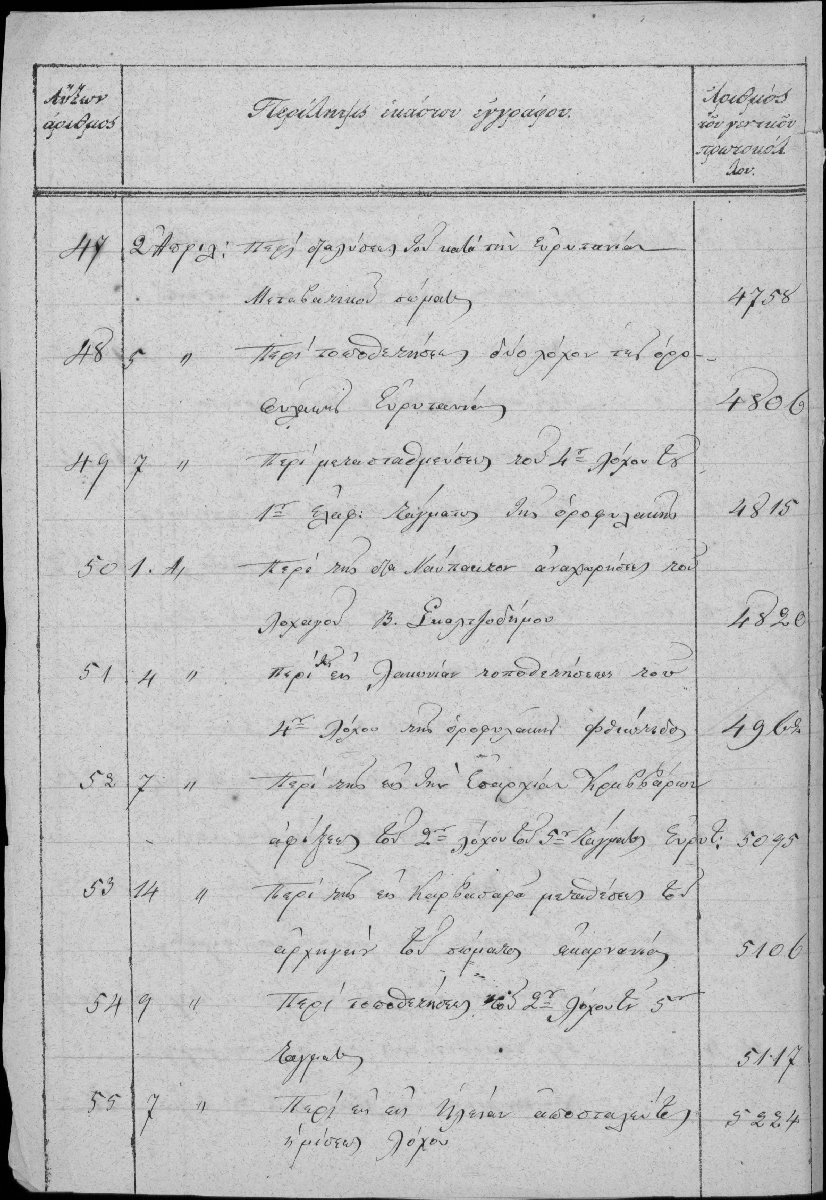 Αὔξων
ἀριθμὸς
Περίληψις ἑκάστου ἐγγράφου.
Ἀριθμὸς
τοῦ γενικοῦ
πρωτοκόλ
λου.
47 2 Ἀπριλ: Περὶ διαλύσεως τοῦ κατὰ τὴν Εὐρυτανίαν
Μεταβατικοῦ σώματος 4758
48 5 " Περὶ τοποθετήσεως δύο λόχων τῆς ὁρο-
φυλακῆς Εὐρυτανίας 4806
49 7 " Περὶ μετασταθμεύσεως τοῦ 4ου λόχου τοῦ
1ου Ἐλαφ: τάγματος τῆς ὁροφυλακῆς 4815
50 1. Περὶ τῆς διὰ Ναύπακτον ἀναχωρήσεως τοῦ
λοχαγοῦ Β. Γκολτζοδήμου 4820
51 4 " Περὶ τῆς εἰς Λακωνίαν τοποθετήσεως του
4ου λόχου τῆς ὁροφυλακῆς Φθιώτιδος 4962
52 7 " Περὶ τῆς εἰς τὴν Ἐπαρχίαν Κραββάρων
ἀφίξεως τοῦ 2ου λόχου τοῦ 5ου τάγματος Εὐρυτ: 5095
53 14 " Περὶ τῆς εἰς Καρβασαρᾶ μεταθέσεως τοῦ
ἀρχηγείου τοῦ σώματος Ἀκαρνανίας 5106
54 9 " Περὶ τοποθετήσεως τοῦ 2ου λόχου τοῦ 5ου
τάγματος 5117
55 7 " Περὶ τῆς εἰς Ἠλείαν ἀποσταλείσης
ἡμίσεως λόχου 5224